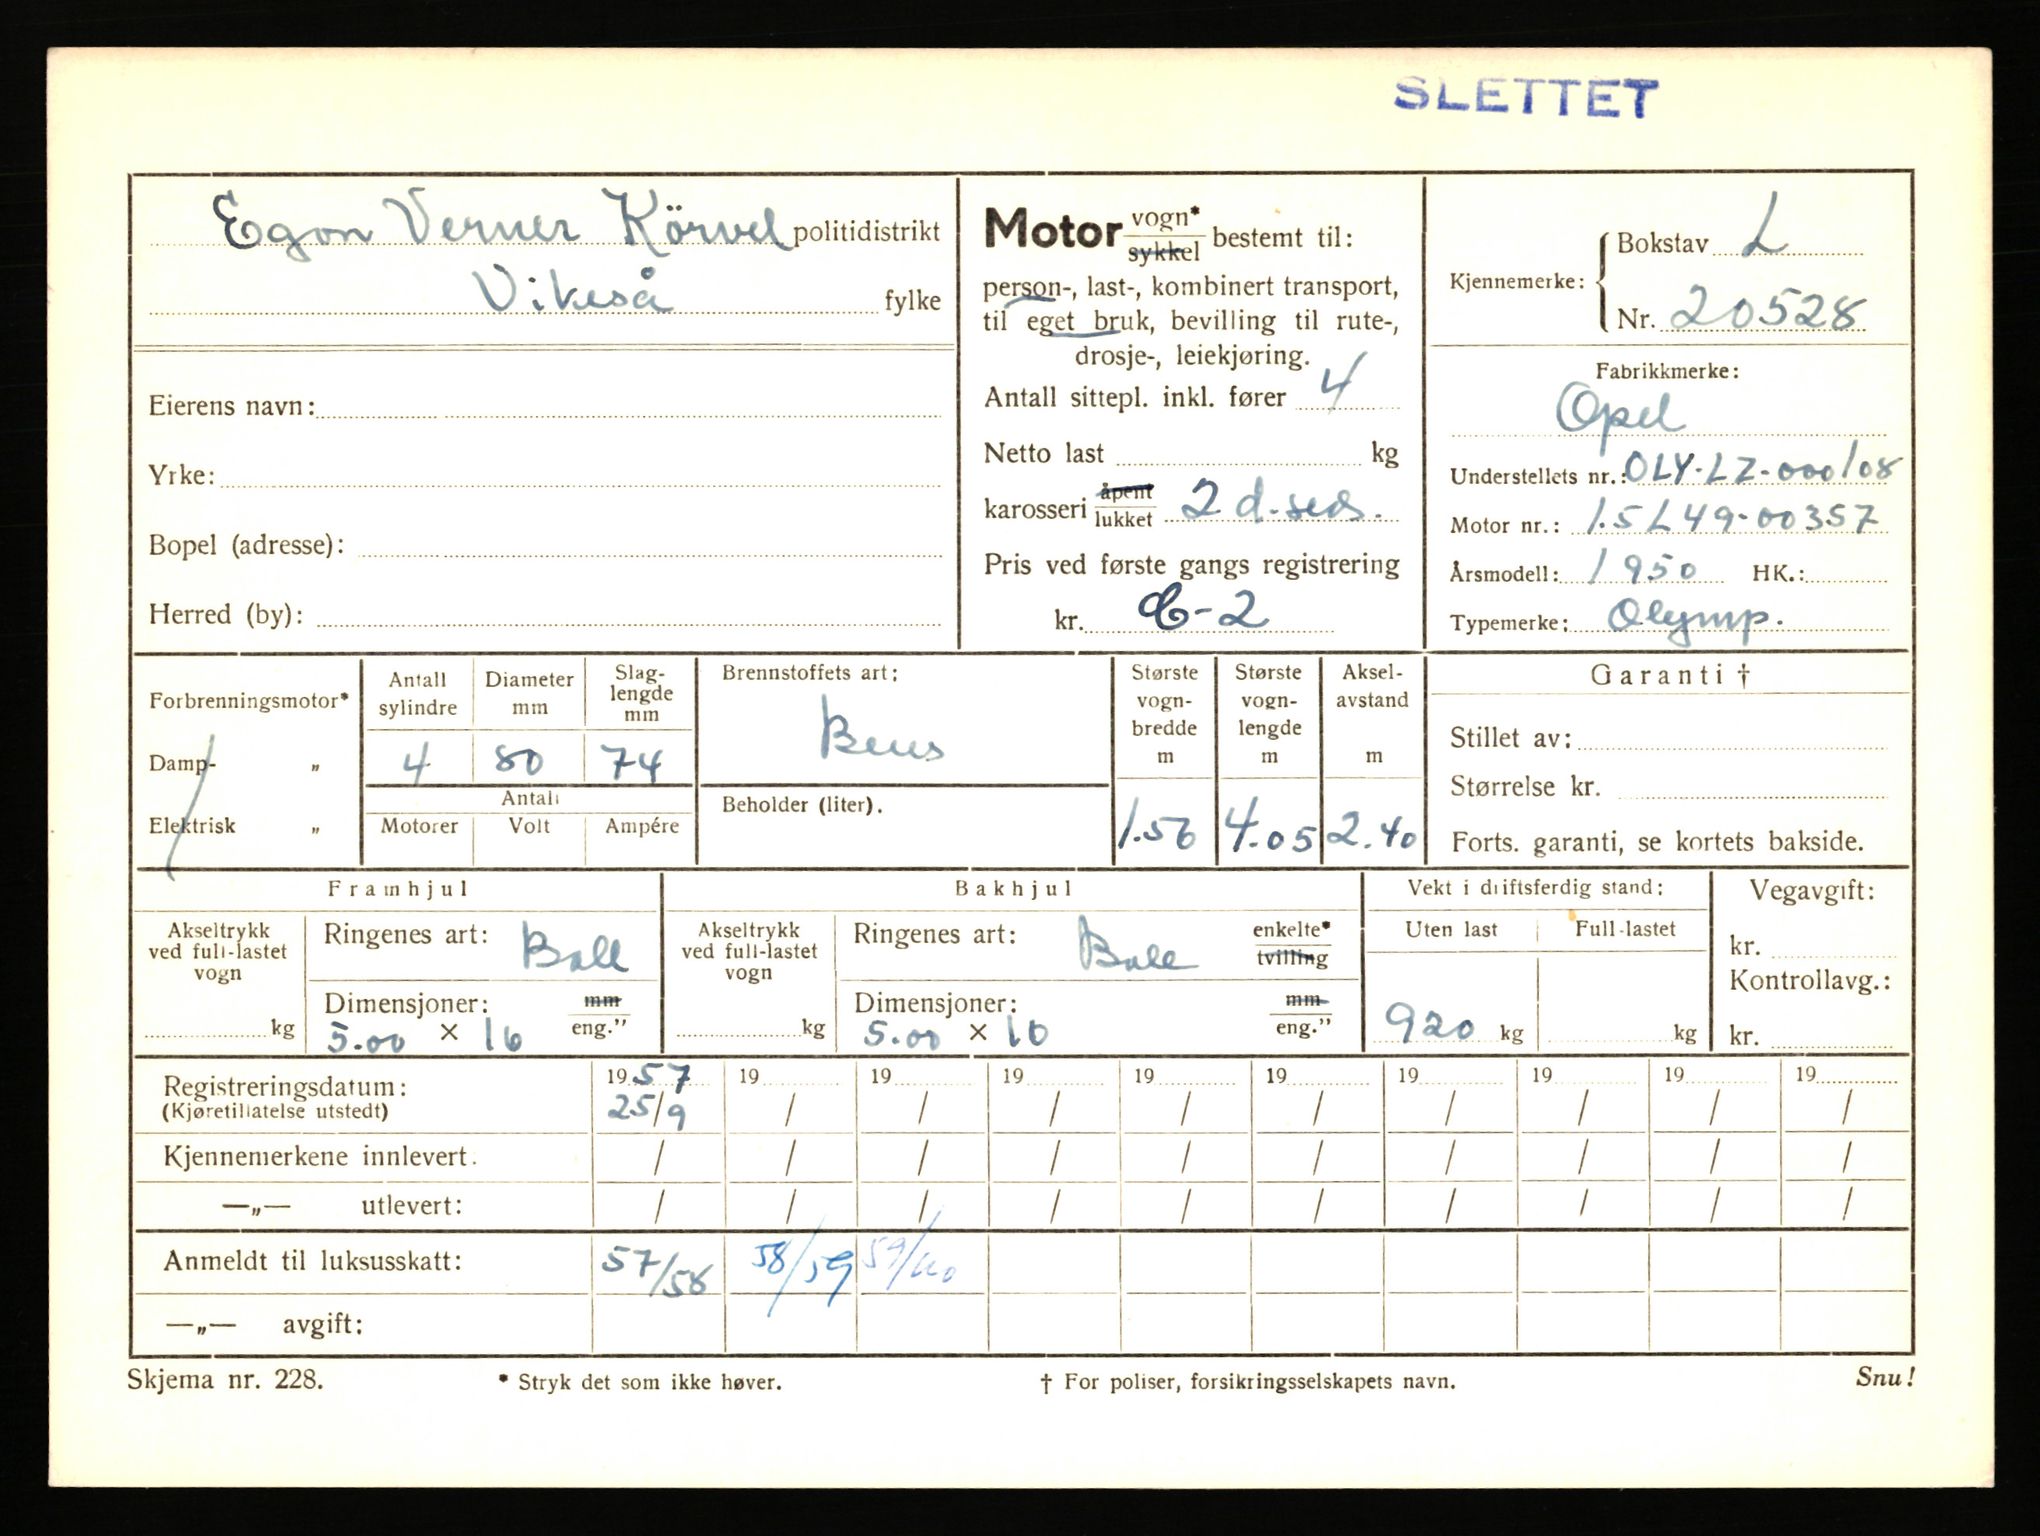 SLETTET
Egon Verner Körvel politidistrikt
Vikeså fylke
Eierens navn:
Yrke:
Bopel (adresse):
Herred (by):
Motor vogn* sykkel bestemt til:
person-, last-, kombinert transport,
til eget bruk, bevilling til rute-,
drosje-, leiekjøring.
Antall sittepl. inkl. fører 4
Netto last kg
karosseri åpent lukket 2 d. sed.
Pris ved første gangs registrering
kr. C-2
Kjennemerke: Bokstav L
Nr. 20528
Fabrikkmerke:
Opel
Understellets nr.: OLY-LZ-000108
Motor nr.: 1.5L49-00357
Årsmodell: 1950 HK.:
Typemerke: Olymp.
Forbrenningsmotor*
Damp- „
Elektrisk „
Antall sylindre
4
Diameter mm
80
Slag-lengde mm
74
Antall
Motorer Volt Ampére
Brennstoffets art:
Bens
Beholder (liter).
Største vogn-bredde m
1.56
Største vogn-lengde m
4.05
Aksel-avstand m
2.40
Garanti †
Stillet av:
Størrelse kr.
Forts. garanti, se kortets bakside.
Framhjul
Akseltrykk ved full-lastet vogn
kg
Ringenes art: Ball
Dimensjoner: mm
5.00 × 16 eng."
Bakhjul
Akseltrykk ved full-lastet vogn
kg
Ringenes art: Ball enkelte* tvilling
Dimensjoner: mm
5.00 × 16 eng."
Vekt i driftsferdig stand:
Uten last Full-lastet
920 kg kg
Vegavgift:
kr.
Kontrollavg.:
kr.
Registreringsdatum: 1957 19 19 19 19 19 19 19 19 19
(Kjøretillatelse utstedt) 25/9 / / / / / / / / /
Kjennemerkene innlevert. / / / / / / / / / /
—„— utlevert: / / / / / / / / / /
Anmeldt til luksusskatt: 57/58 58/59 59/60
—„— avgift:
Skjema nr. 228. * Stryk det som ikke høver. † For poliser, forsikringsselskapets navn. Snu!